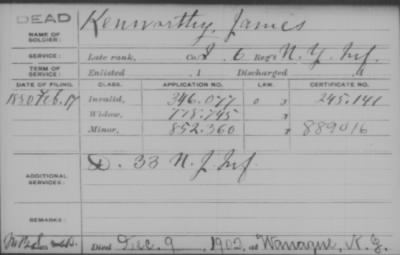 DEAD
NAME OF SOLDIER: Kenworthy, James
SERVICE: Late rank, Co. I, 6 Reg't N.Y. Inf.
TERM OF SERVICE: Enlisted , 1 Discharged , 1
DATE OF FILING. CLASS. APPLICATION NO. LAW. CERTIFICATE NO.
1880 Feb. 17 Invalid, 346.077 245.141
Widow, 778.745 x
Minor, 852.360 x 889016
ADDITIONAL SERVICES: D. 33 N.J. Inf.
REMARKS:
Died Dec. 9, 1902, at Wanaque, N.J.